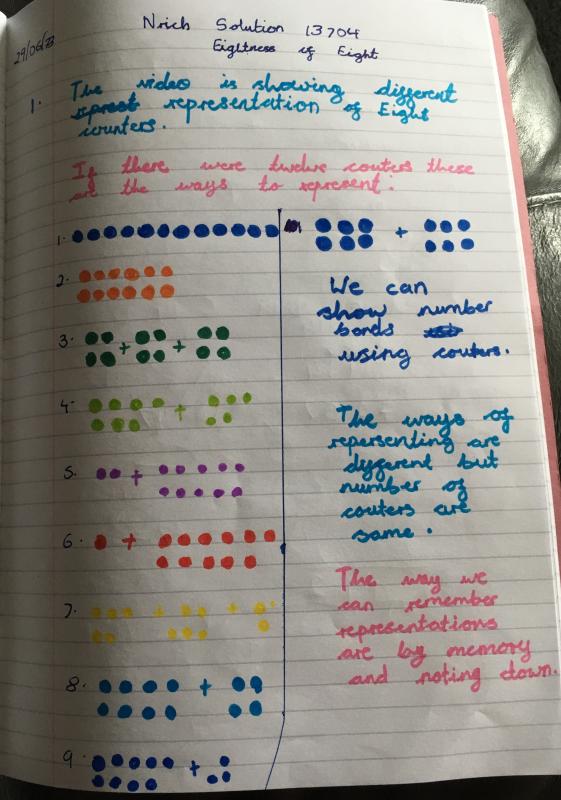 29/06/23
Nrich Solution 13704
Eightness of Eight
1. The video is showing different
representation of Eight
counters.
If there were twelve couters these
are the ways to represent.
1.
2.
3. + +
4. +
5. +
6. +
7. + +
8. +
9. +
+
We can
show number
bonds
using couters.
The ways of
repersenting are
different but
number of
couters are
same.
The way we
can remember
representations
are by memory
and noting down.